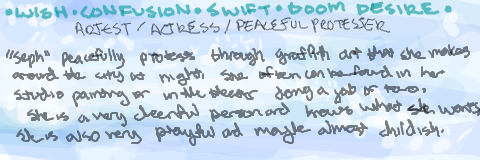 •WISH•CONFUSION•SWIFT•DOOM DESIRE•
ARTEST / ACTRESS / PEACEFUL PROTESTER
"Seph" peacefully protests through graffiti art that she makes
around the city at night. She often can be found in her
studio painting or in the theater doing a job or two.
She is a very cheerful person and knows what she wants
She is also very playful and maybe almost childish.